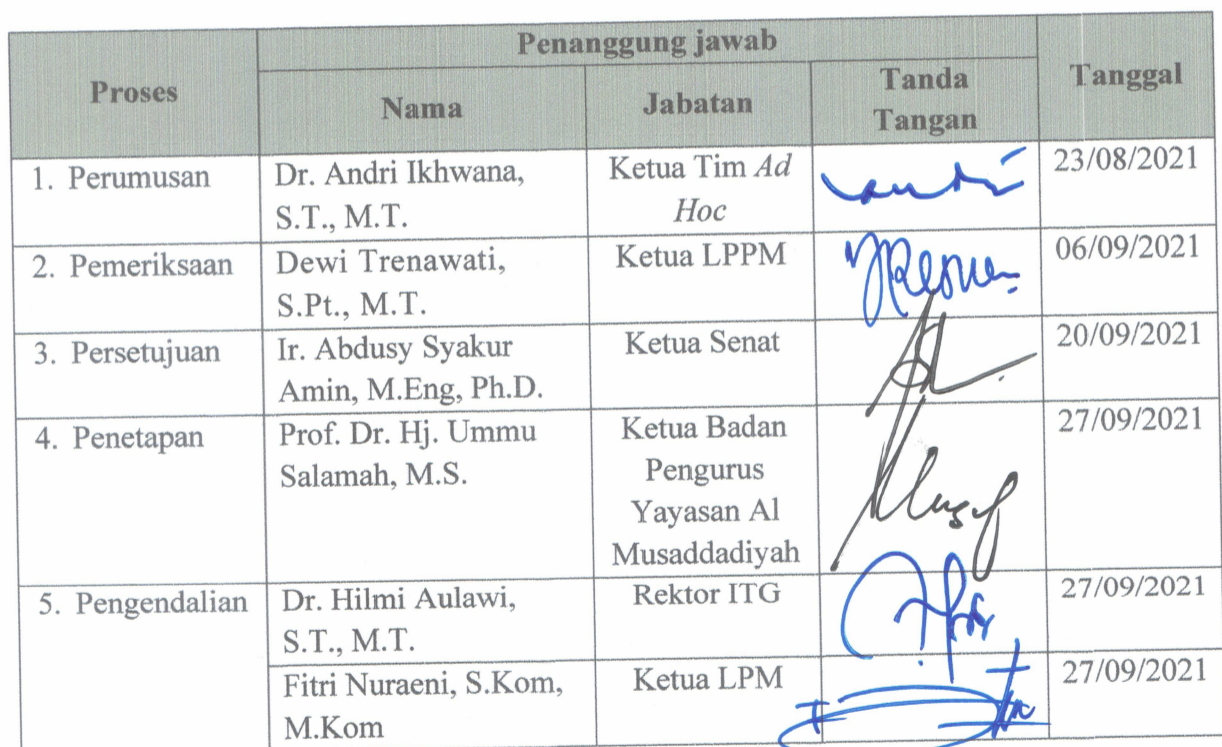 Penanggung jawab
Proses
Nama
Jabatan
Tanda
Tangan
Tanggal
1. Perumusan
Dr. Andri Ikhwana,
S.T., M.T.
Ketua Tim Ad
Hoc
23/08/2021
2. Pemeriksaan
Dewi Trenawati,
S.Pt., M.T.
Ketua LPPM
06/09/2021
3. Persetujuan
Ir. Abdusy Syakur
Amin, M.Eng, Ph.D.
Ketua Senat
20/09/2021
4. Penetapan
Prof. Dr. Hj. Ummu
Salamah, M.S.
Ketua Badan
Pengurus
Yayasan Al
Musaddadiyah
27/09/2021
5. Pengendalian
Dr. Hilmi Aulawi,
S.T., M.T.
Rektor ITG
27/09/2021
Fitri Nuraeni, S.Kom,
M.Kom
Ketua LPM
27/09/2021